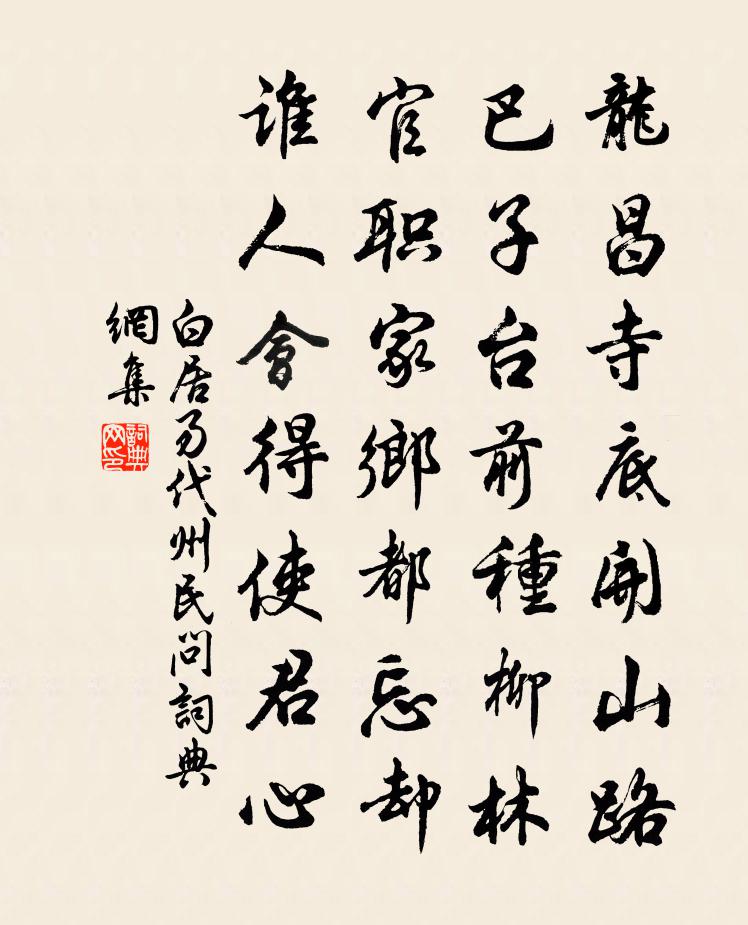 龍昌寺底開山路
巴子台前種柳林
官职家鄉都忘却
谁人會得使君心
白居易代州民问詞典
網集
詞典
网印